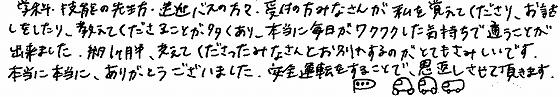 学科・技能の先生方・送迎バスの方々・受付の方みなさんが私を覚えてくださり、お話
しをしたり、教えてくださることが多くあり、本当に毎日がワクワクした気持ちで通うことが
出来ました。約1ヶ月半、支えてくださったみなさんとお別れするのがとてもさみしいです。
本当に本当に、ありがとうございました。安全運転をすることで、恩返しさせて頂きます。